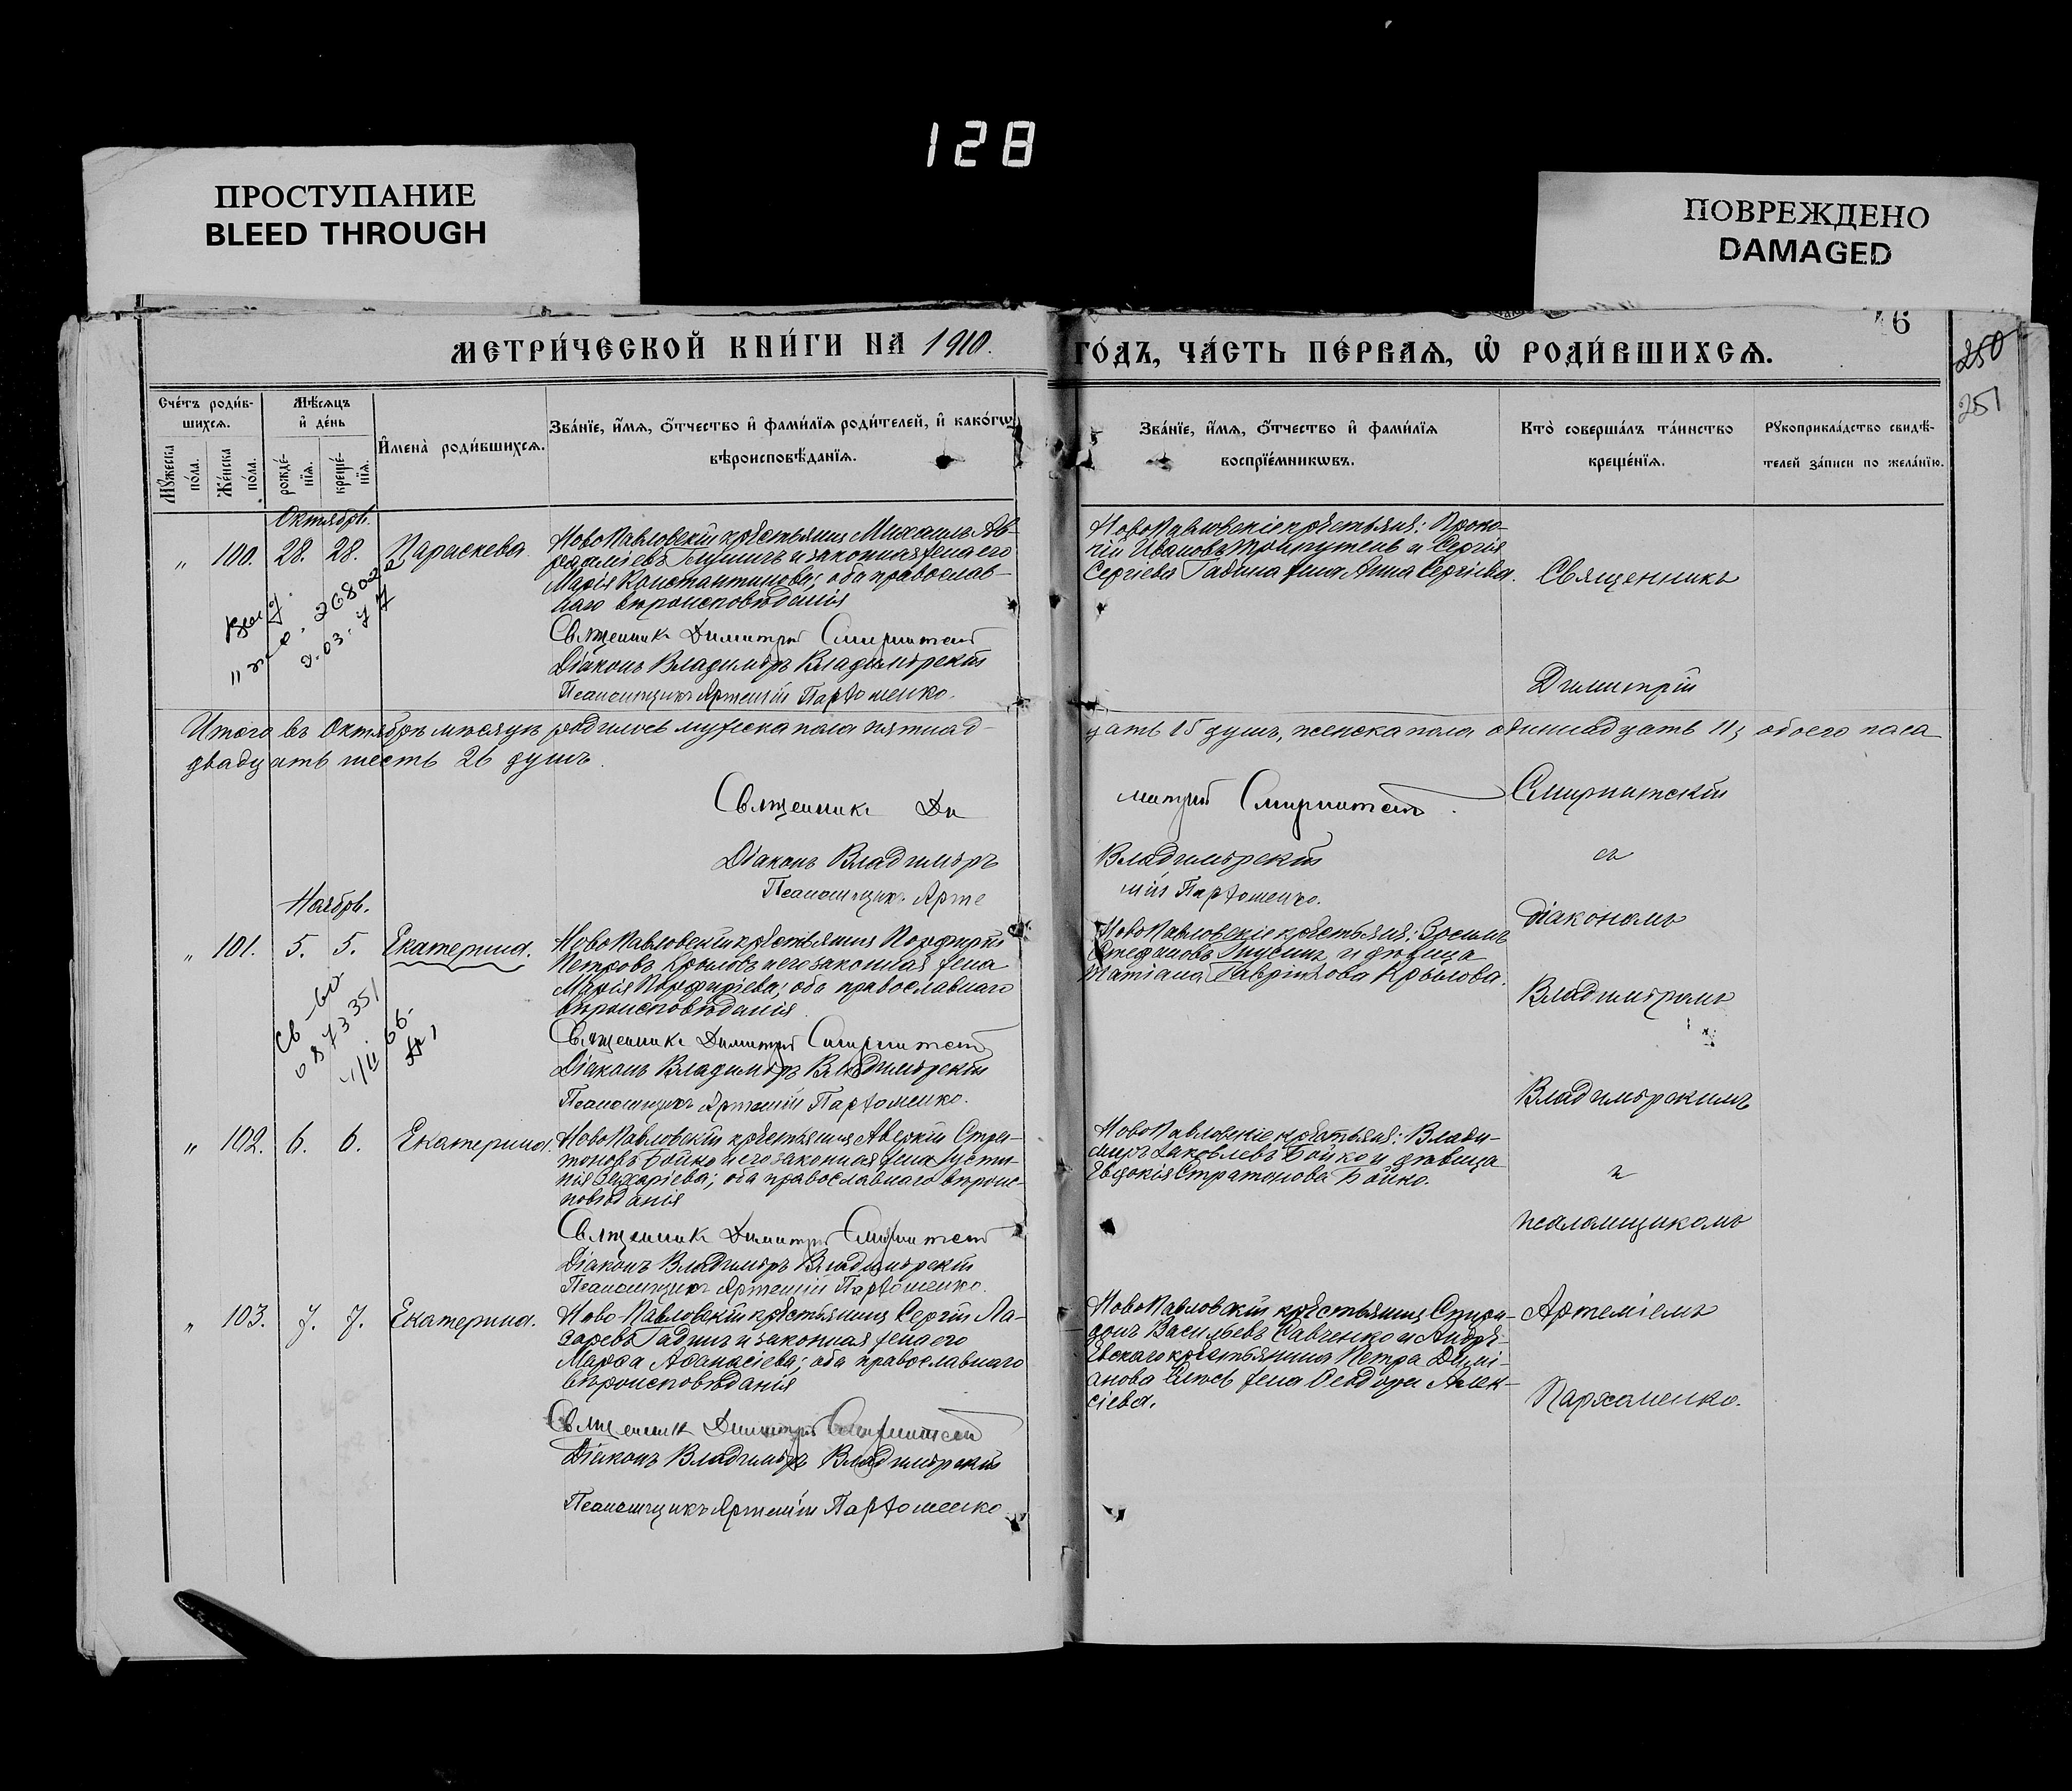 128
ПРОСТУПАНИЕ
BLEED THROUGH
ПОВРЕЖДЕНО
DAMAGED
6
250
251
МЕТРИ́ЧЕСКОЙ КНИ́ГИ НА 1910.
ГО́ДЪ, ЧА́СТЬ ПЕ́РВАѦ, Ѡ҆ РОДИ́ВШИХСѦ.
Сче́тъ роди́в-
шихсѧ.
Мꙋ́жеска по́ла.
Же́нска по́ла.
Мѣ́сѧцъ
и҆ де́нь
рожде́-нїѧ.
креще́-нїѧ.
И҆мена̀ роди́вшихсѧ.
Зва́нїе, и҆́мѧ, ѻ҆́тчество и҆ фами́лїѧ роди́телей, и҆ како́гѡ
вѣроисповѣ́данїѧ.
Зва́нїе, и҆́мѧ, ѻ҆́тчество и҆ фами́лїѧ
воспрїе́мникѡвъ.
Кто̀ соверша́лъ та́инство
креще́нїѧ.
Рꙋкоприкла́дство свидѣ́-
телей за́писи по жела́нїю.
Октябрь.
„ 100. 28. 28. Параскева.
НовоПавловскій крестьянинъ Михаилъ Ав-
и законная жена его
Марія Константинова; оба православ-
наго вѣроисповѣданія
Священникъ Димитрій Смирнитскій
Діаконъ Владиміръ Владимірскій
Псаломщикъ Артемій Пархоменко.
НовоПавловскіе крестьяне: Проко-
пій Ивановъ и Сергія
Сергіева Гадина жена Анна Сергіева.
Священникъ
Димитрій
Смирнитскій
съ
діакономъ
Владиміромъ
Владимірскимъ
и
псаломщикомъ
Артеміемъ
Пархоменко.
Итого въ Октябрѣ мѣсяцѣ родилось мужеска пола пятнад-
цать 15 душъ, женска пола одиннадцать 11, обоего пола
двадцать шесть 26 душъ.
Священникъ Ди
митрій Смирнитскій.
Діаконъ Владиміръ
Владимірскій
Псаломщикъ Арте
мій Пархоменко.
Ноябрь.
„ 101. 5. 5. Екатерина.
НовоПавловскій крестьянинъ Порфирій
Петровъ Крыловъ и его законная жена
Марія Порфиріева; оба православнаго
вѣроисповѣданія
Священникъ Димитрій Смирнитскій
Діаконъ Владиміръ Владимірскій
Псаломщикъ Артемій Пархоменко.
НовоПавловскіе крестьяне: Зосимъ
Стефановъ и дѣвица
Татіана Гавріилова Крылова.
„ 102. 6. 6. Екатерина.
НовоПавловскій крестьянинъ Аверкій Стра-
тоновъ Бойко и его законная жена Іусти-
нія Захаріева; оба православнаго вѣроис-
повѣданія
Священникъ Димитрій Смирнитскій
Діаконъ Владиміръ Владимірскій
Псаломщикъ Артемій Пархоменко.
НовоПавловскіе крестьяне: Влади-
миръ Яковлевъ Бойко и дѣвица
Евдокія Стратонова Бойко.
„ 103. 7. 7. Екатерина.
Ново-Павловскій крестьянинъ Сергій Ла-
заревъ Гадинъ и законная жена его
Марфа Аѳанасіева; оба православнаго
вѣроисповѣданія
Священникъ Димитрій Смирнитскій
Діаконъ Владиміръ Владимірскій
Псаломщикъ Артемій Пархоменко
НовоПавловскій крестьянинъ Спири-
донъ Васильевъ Савченко и Андре-
евскаго крестьянина Петра Деми-
анова жена Ѳеодора Алек-
сіева.